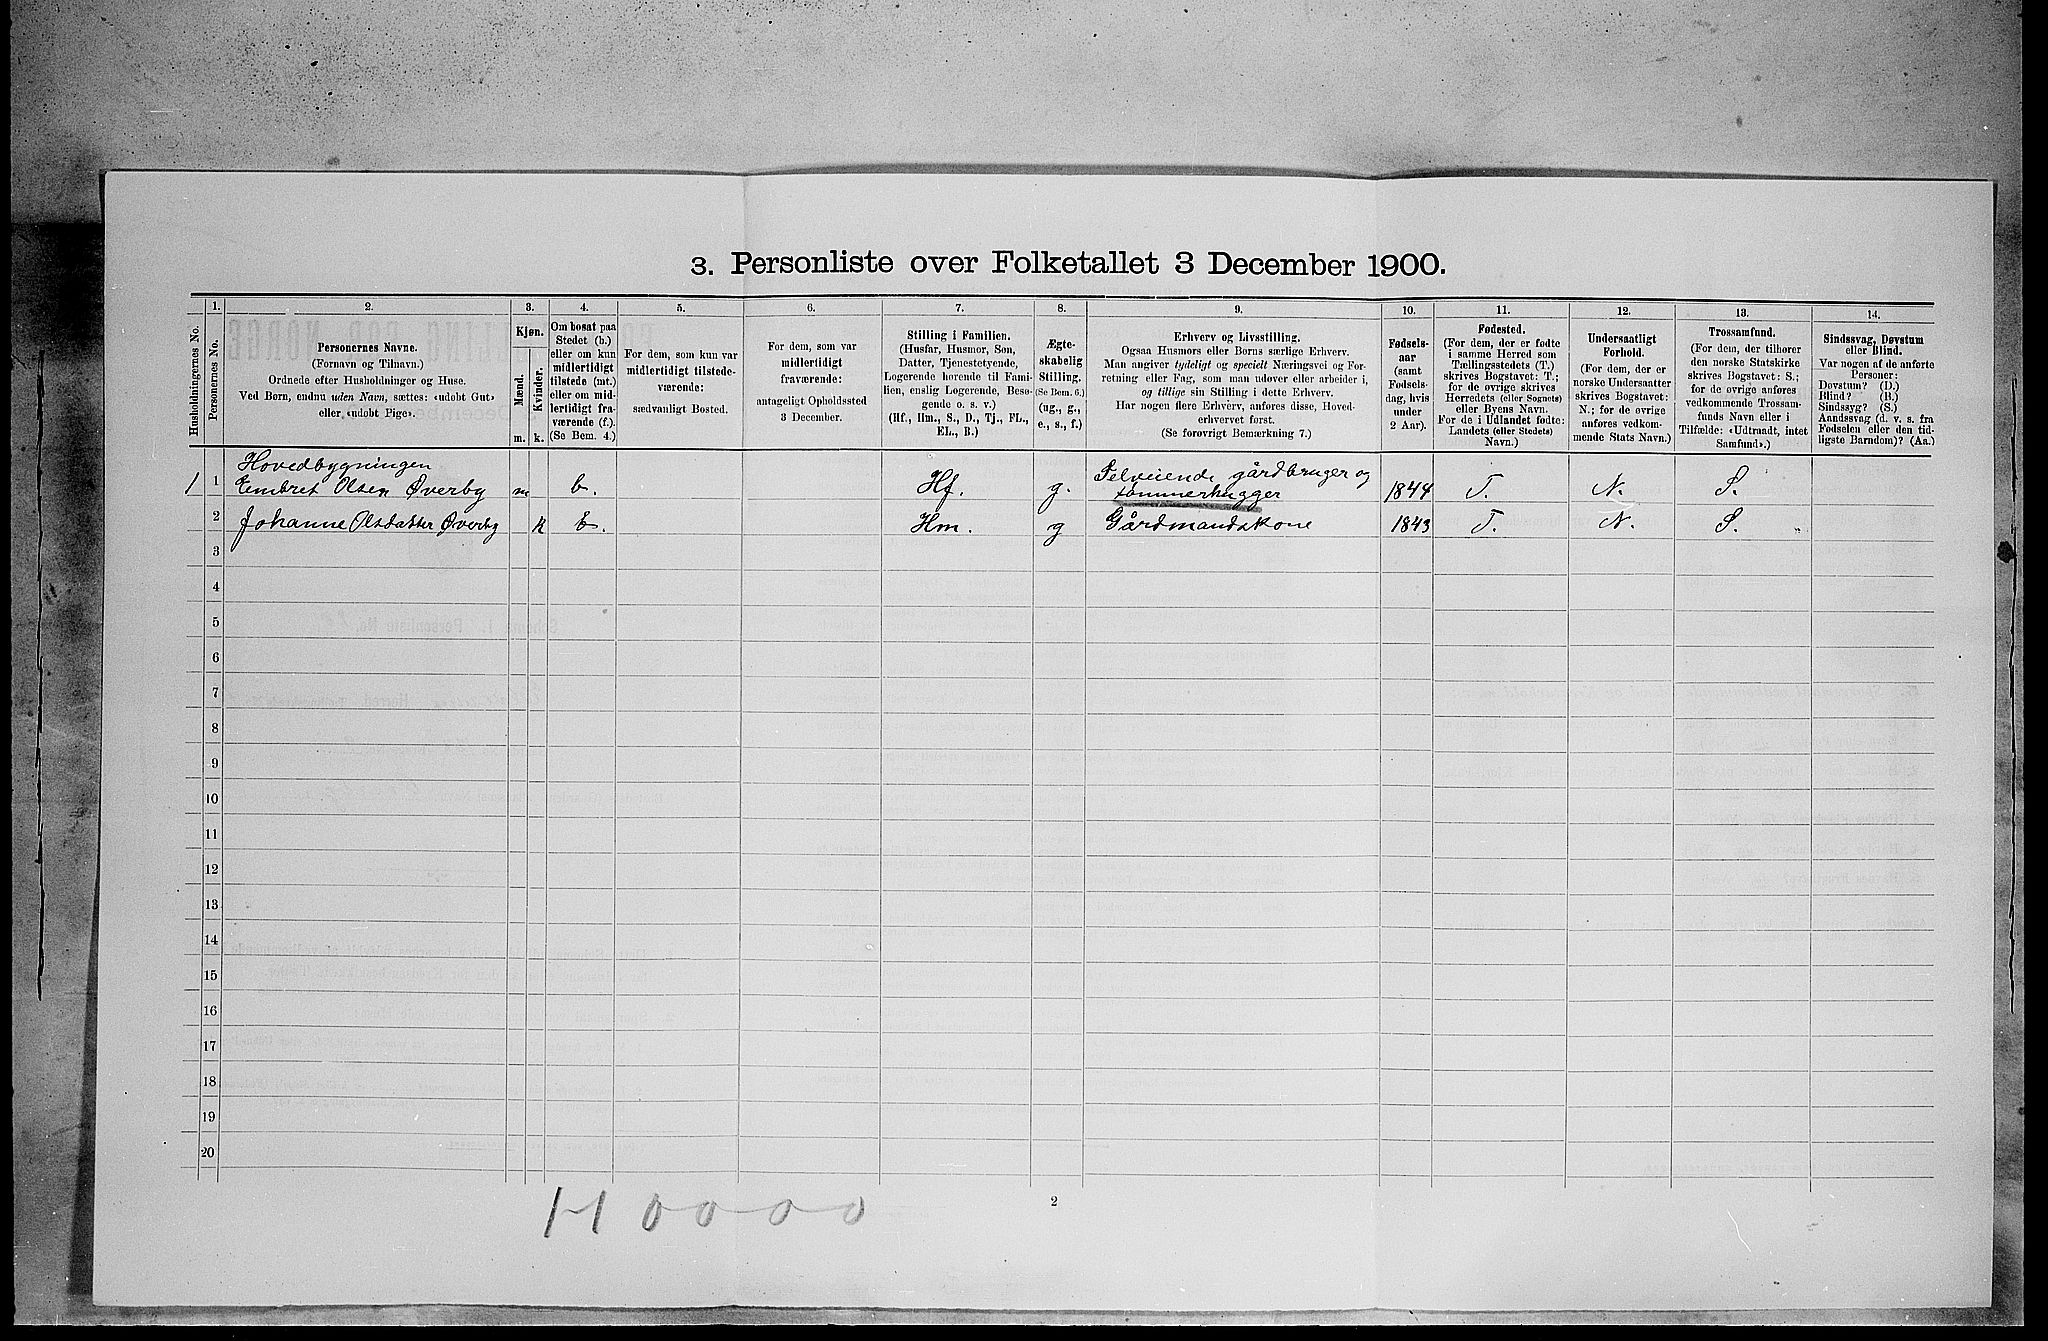 3. Personliste over Folketallet 3 December 1900.
Husholdningernes No.
1.
Personernes No.
2.
Personernes Navne.
(Fornavn og Tilnavn.)
Ordnede efter Husholdninger og Huse.
Ved Børn, endnu uden Navn, sættes: «udøbt Gut»
eller «udøbt Pige».
3.
Kjøn.
Mænd.
m.
Kvinder.
k.
4.
Om bosat paa
Stedet (b.)
eller om kun
midlertidigt
tilstede (mt.)
eller om mid-
lertidigt fra-
værende (f.).
(Se Bem. 4.)
5.
For dem, som kun var
midlertidigt tilstede-
værende:
sædvanligt Bosted.
6.
For dem, som var
midlertidigt
fraværende:
antageligt Opholdssted
3 December.
7.
Stilling i Familien.
(Husfar, Husmor, Søn,
Datter, Tjenestetyende,
Logerende hørende til Fami-
lien, enslig Logerende, Besø-
gende o. s. v.)
(Hf., Hm., S., D., Tj., FL.,
EL., B.)
8.
Ægte-
skabelig
Stilling.
(Se Bem. 6.)
(ug., g.,
e., s., f.)
9.
Erhverv og Livsstilling.
Ogsaa Husmors eller Børns særlige Erhverv.
Man angiver tydeligt og specielt Næringsvei og For-
retning eller Fag, som man udøver eller arbeider i,
og tillige sin Stilling i dette Erhverv.
Har nogen flere Erhverv, anføres disse, Hoved-
erhvervet først.
(Se forøvrigt Bemærkning 7.)
10.
Fødsels-
aar
(samt
Fødsels-
dag, hvis
under
2 Aar).
11.
Fødested.
(For dem, der er fødte
i samme Herred som
Tællingsstedets (T.)
skrives Bogstavet: T.;
for de øvrige skrives
Herredets (eller Sognets)
eller Byens Navn.
For de i Udlandet fødte:
Landets (eller Stedets)
Navn.)
12.
Undersaatligt
Forhold.
(For dem, der er
norske Undersaatter
skrives Bogstavet:
N.; for de øvrige
anføres vedkom-
mende Stats Navn.)
13.
Trossamfund.
(For dem, der tilhører
den norske Statskirke
skrives Bogstavet: S.;
for de øvrige anføres
vedkommende Trossam-
funds Navn eller i
Tilfælde: «Udtraadt, intet
Samfund».)
14.
Sindssvag, Døvstum
eller Blind.
Var nogen af de anførte
Personer:
Døvstum? (D.)
Blind? (B.)
Sindssyg? (S.)
Aandssvag (d. v. s. fra
Fødselen eller den tid-
ligste Barndom)? (Aa.)
Hovedbygningen
1 1 Embret Olsen Øverby m b. Hf. g. Selveiende gårdbruger og
tømmerhugger 1844 T. N. S.
2 Johanne Olsdatter Øverby k b. Hm. g Gårdmandskone 1843 T. N. S.
3
4
5
6
7
8
9
10
11
12
13
14
15
16
17
18
19
20
2